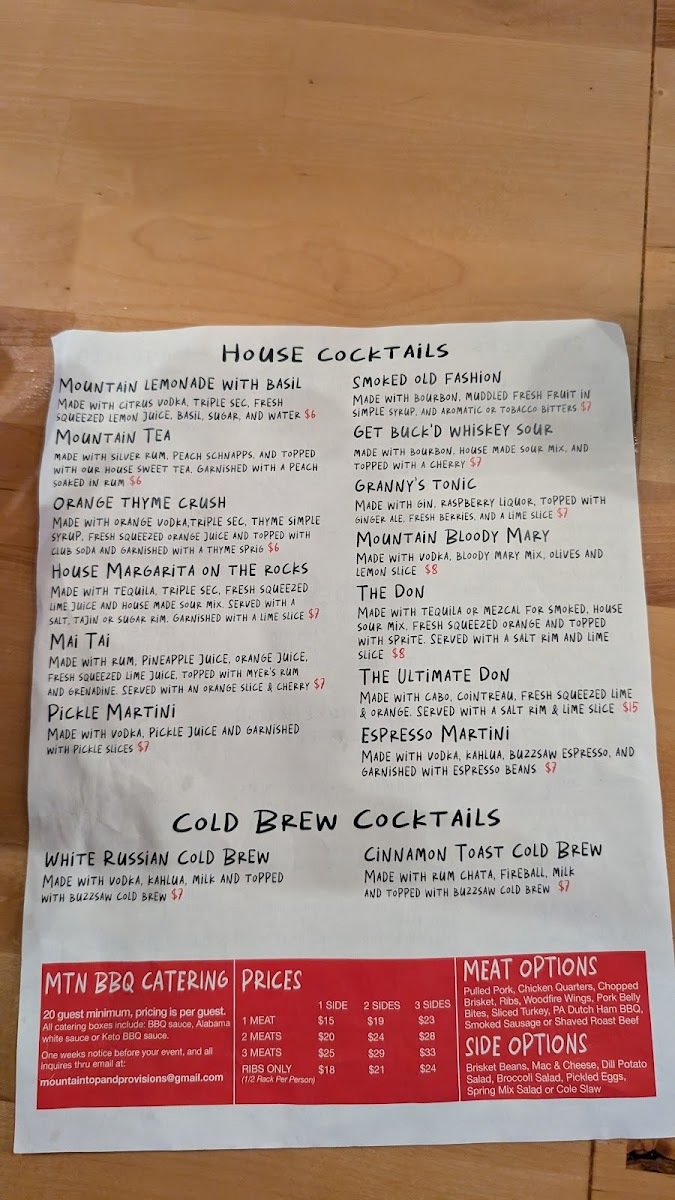 HOUSE COCKTAILS
MOUNTAIN LEMONADE WITH BASIL
MADE WITH CITRUS VODKA, TRIPLE SEC, FRESH
SQUEEZED LEMON JUICE, BASIL, SUGAR, AND WATER $6
MOUNTAIN TEA
MADE WITH SILVER RUM, PEACH SCHNAPPS, AND TOPPED
WITH OUR HOUSE SWEET TEA. GARNISHED WITH A PEACH
SOAKED IN RUM $6
ORANGE THYME CRUSH
MADE WITH ORANGE VODKA,TRIPLE SEC, THYME SIMPLE
SYRUP, FRESH SQUEEZED ORANGE JUICE AND TOPPED WITH
CLUB SODA AND GARNISHED WITH A THYME SPRIG $6
HOUSE MARGARITA ON THE ROCKS
MADE WITH TEQUILA, TRIPLE SEC, FRESH SQUEEZED
LIME JUICE AND HOUSE MADE SOUR MIX. SERVED WITH A
SALT, TAJIN OR SUGAR RIM. GARNISHED WITH A LIME SLICE $7
MAI TAI
MADE WITH RUM, PINEAPPLE JUICE, ORANGE JUICE,
FRESH SQUEEZED LIME JUICE, TOPPED WITH MYER'S RUM
AND GRENADINE. SERVED WITH AN ORANGE SLICE & CHERRY $7
PICKLE MARTINI
MADE WITH VODKA, PICKLE JUICE AND GARNISHED
WITH PICKLE SLICES $7
SMOKED OLD FASHION
MADE WITH BOURBON, MUDDLED FRESH FRUIT IN
SIMPLE SYRUP, AND AROMATIC OR TOBACCO BITTERS $7
GET BUCK'D WHISKEY SOUR
MADE WITH BOURBON, HOUSE MADE SOUR MIX, AND
TOPPED WITH A CHERRY $7
GRANNY'S TONIC
MADE WITH GIN, RASPBERRY LIQUOR, TOPPED WITH
GINGER ALE, FRESH BERRIES, AND A LIME SLICE $7
MOUNTAIN BLOODY MARY
MADE WITH VODKA, BLOODY MARY MIX, OLIVES AND
LEMON SLICE $8
THE DON
MADE WITH TEQUILA OR MEZCAL FOR SMOKED, HOUSE
SOUR MIX, FRESH SQUEEZED ORANGE AND TOPPED
WITH SPRITE. SERVED WITH A SALT RIM AND LIME
SLICE $8
THE ULTIMATE DON
MADE WITH CABO, COINTREAU, FRESH SQUEEZED LIME
& ORANGE. SERVED WITH A SALT RIM & LIME SLICE $15
ESPRESSO MARTINI
MADE WITH VODKA, KAHLUA, BUZZSAW ESPRESSO, AND
GARNISHED WITH ESPRESSO BEANS $7
COLD BREW COCKTAILS
WHITE RUSSIAN COLD BREW
MADE WITH VODKA, KAHLUA, MILK AND TOPPED
WITH BUZZSAW COLD BREW $7
CINNAMON TOAST COLD BREW
MADE WITH RUM CHATA, FIREBALL, MILK
AND TOPPED WITH BUZZSAW COLD BREW $7
MTN BBQ CATERING
20 guest minimum, pricing is per guest.
All catering boxes include: BBQ sauce, Alabama
white sauce or Keto BBQ sauce.
One weeks notice before your event, and all
inquires thru email at:
mountaintopandprovisions@gmail.com
PRICES
1 SIDE 2 SIDES 3 SIDES
1 MEAT $15 $19 $23
2 MEATS $20 $24 $28
3 MEATS $25 $29 $33
RIBS ONLY $18 $21 $24
(1/2 Rack Per Person)
MEAT OPTIONS
Pulled Pork, Chicken Quarters, Chopped
Brisket, Ribs, Woodfire Wings, Pork Belly
Bites, Sliced Turkey, PA Dutch Ham BBQ,
Smoked Sausage or Shaved Roast Beef
SIDE OPTIONS
Brisket Beans, Mac & Cheese, Dill Potato
Salad, Broccoli Salad, Pickled Eggs,
Spring Mix Salad or Cole Slaw